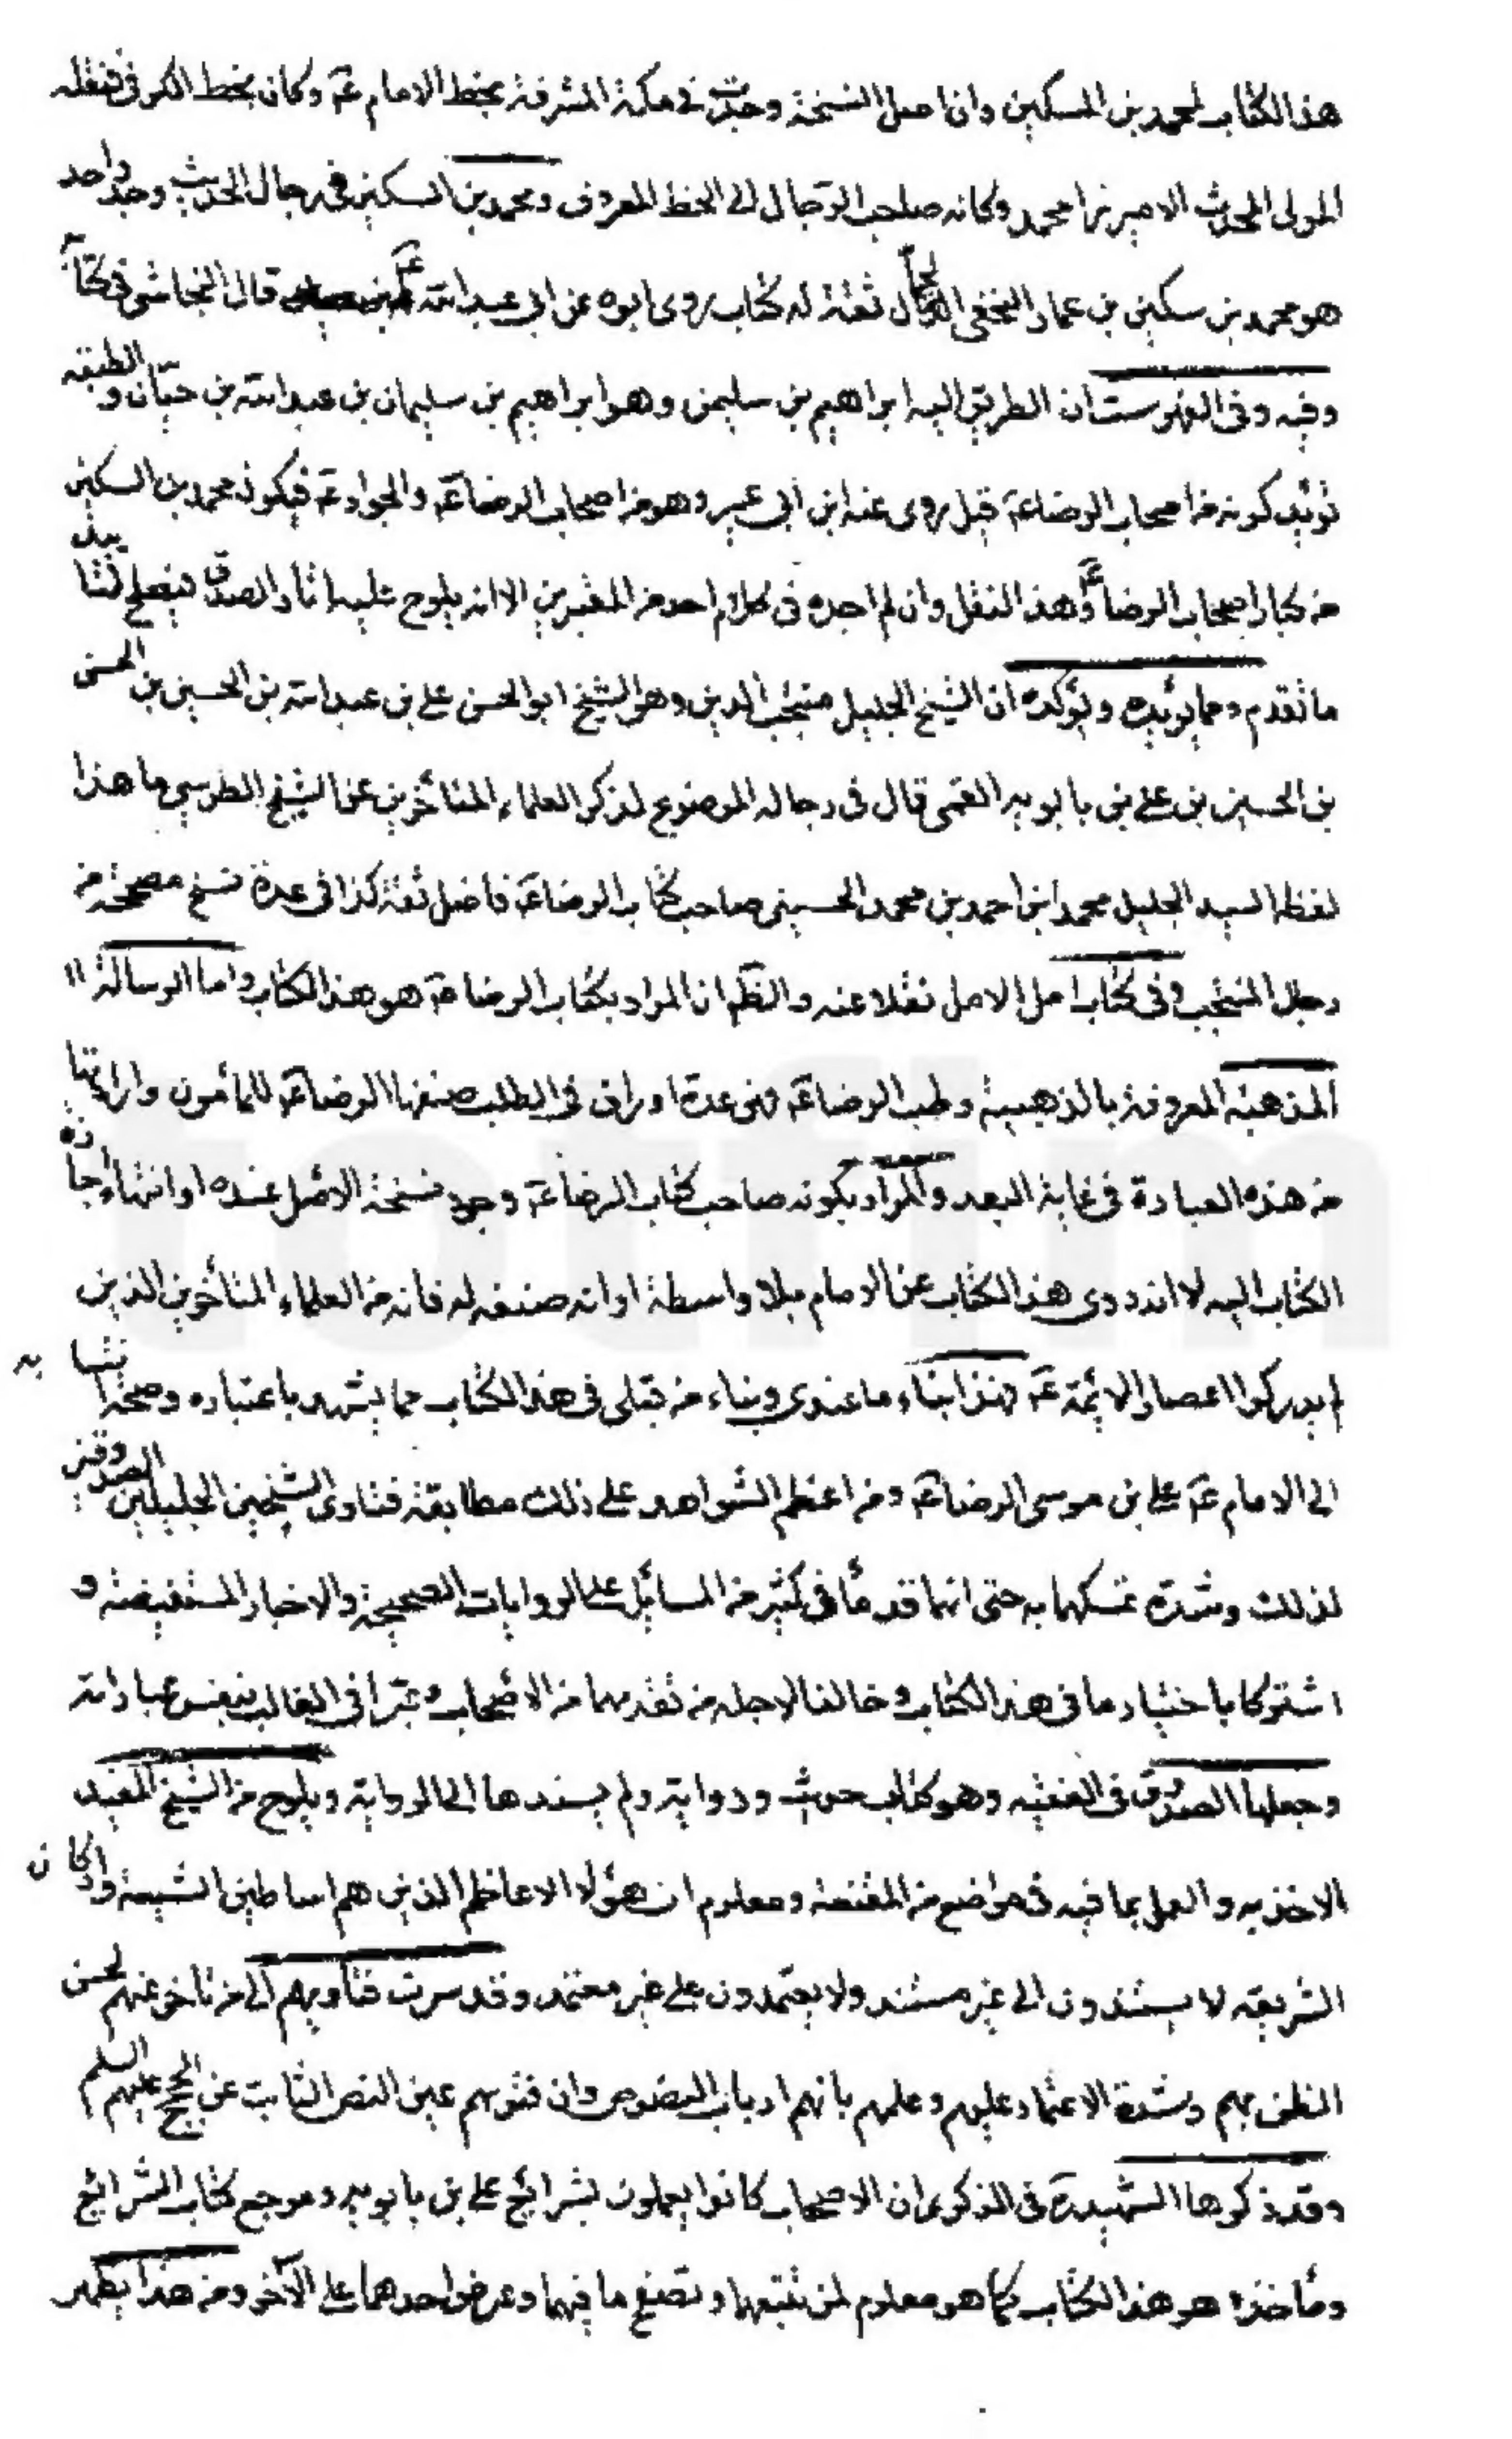 هذا الكتاب لمحمد بن السكين وان اصل النسخة وجدت في مكة المشرفة بخط الامام عم وكان بخط الكوفى فنقله
المولى المحدث الاميرزا محمد وكانه صاحب الرجال الى الخط المعروف ومحمد بن السكين في رجال الحديث وجد واحد
هو محمد بن سكين بن عمار النخعى الجمال ثقة له كتاب روى ابوه عن ابى عبد الله عم قال النجاشى في كتابه
وفيه وفى الفهرست ان الطريق اليه ابراهيم بن سليمن وهو ابراهيم بن سليمان بن عبد الله بن حيان والطبقة
تؤيد كونه من اصحاب الرضا عم قيل روى عنه ابن ابى عمير وهو من اصحاب الرضا عم والجواد عم فيكون محمد بن السكين
من كبار اصحاب الرضا عم وهذا النقل وان لم اجده فى كلام احد من المعتبرين الا انه يلوح عليه اثار الصدق فيصلح لتاييد
ما تقدم ومما يؤيده ويؤكده ان الشيخ الجليل منتجب الدين وهو الشيخ ابو الحسن على بن عبد الله بن الحسين بن الحسن
بن الحسين بن على بن بابويه القمى قال فى رجاله الموضوع لذكر العلماء المتأخرين عن الشيخ الطوسي ما هذا
لفظه السيد الجليل محمد ابن احمد بن محمد الحسينى صاحب كتاب الرضا عم فاضل ثقة كذا فى عدة نسخ مصححة من
رجال المنتجب وفى كتاب امل الامل نقلا عنه والظم ان المراد بكتاب الرضا عم هو هذا الكتاب واما الرسالة
المذهبة المعروفة بالذهبية وطب الرضا عم فهى عدة اوراق فى الطب صنفها الرضا عم للمأمون وارادتها
من هذه العبارة فى غاية البعد والمراد بكونه صاحب كتاب الرضا عم وجود نسخة الاصل عنده او انتهاء اجازة
الكتاب اليه لا انه روى هذا الكتاب عن الامام بلا واسطة او انه صنفه له فانه من العلماء المتأخرين الذين
لم يدركوا اعصار الائمة عم فهذا انباء ما عندى ونباء من قبلى فى هذا الكتاب مما يشهد باعتباره وصحة انتسابه
الى الامام عم على بن موسى الرضا عم ومن اعظم الشواهد على ذلك مطابقة فتاوى الشيخين الجليلين الصدوقين
لذلك وشدة تمسكهما به حتى انهما قدماه فى كثير من المسائل على الروايات الصحيحة والاخبار المستفيضة و
اشتركا باختيار ما فى هذا الكتاب وخالفا لاجله من تقدمهما من الاصحاب وعبرا فى الغالب بنفس عباراته
وجعلها الصدوق فى الفقيه وهو كتاب حديث ورواية ولم يسندها الى الرواية ويلوح من الشيخ المفيد
الاخذ به والعمل بما فيه فى مواضع من المقنعة ومعلوم ان هؤلا الاعاظم الذين هم اساطين الشيعة واركان
الشريعة لا يستندون الى غير مستند ولا يعتمدون على غير معتمد وقد سرت فتاويهم الى من تأخر عنهم لحسن
الظن بهم وشدة الاعتماد عليهم وعلمهم بانهم ارباب النصوص وان فتويهم عين النص الثابت عن الحجج عليهم السلم
وقد ذكر ها الشهيد ره فى الذكرى ان الاصحاب كانوا يعملون بشرائع على بن بابويه ومرجع كتاب الشرائع
ومأخذه هو هذا الكتاب كما هو معلوم لمن تتبعهما وتصفح ما فيهما وعرض احدهما على الآخر ومن هذا يظهر